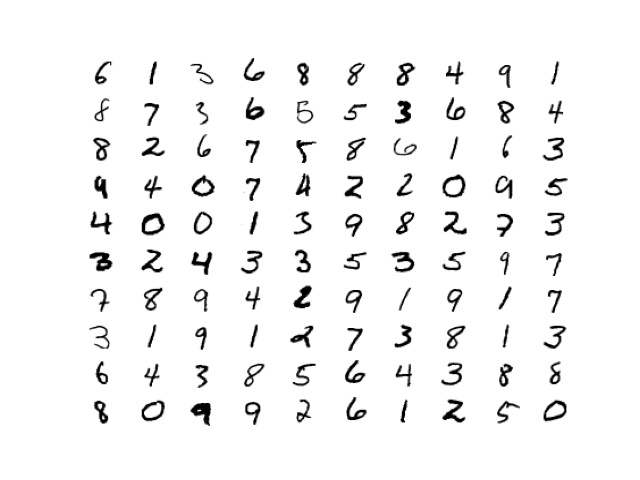 6 1 3 6 8 8 8 4 9 1
8 7 3 6 5 5 3 6 8 4
8 2 6 7 5 8 6 1 6 3
9 4 0 7 4 2 2 0 9 5
4 0 0 1 3 9 8 2 7 3
3 2 4 3 3 5 3 5 9 7
7 8 9 4 2 9 1 9 1 7
3 1 9 1 2 7 3 8 1 3
6 4 3 8 5 6 4 3 8 8
8 0 9 9 2 6 1 2 5 0